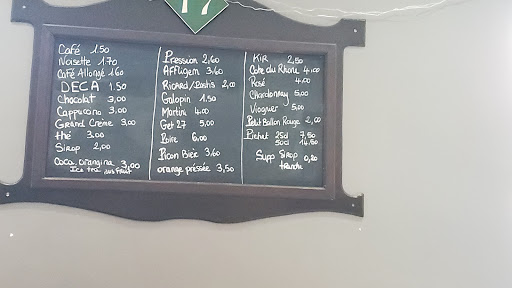 17
Café 1.50
Noisette 1.70
Café Allongé 1.60
DECA 1.50
Chocolat 3,00
Cappuccino 3,00
Grand Crème 3,00
thé 3.00
Sirop 2,00
Coca. orangina 3,00
Ice tea Jus Fruit
Pression 2,60
Affligem 3,60
Ricard/Pastis 2,00
Galopin 1.50
Martini 4.00
Get 27 5,00
Poire 6.00
Picon Bière 3,60
orange pressée 3,50
Kir 2,50
Cote du Rhone 4,00
Rosé 4.00
Chardonnay 5,00
Viognier 5,00
Petit Ballon Rouge 2,00
Pichet 25cl 7,50
50cl 14,50
Supp Sirop 0,20
tranche